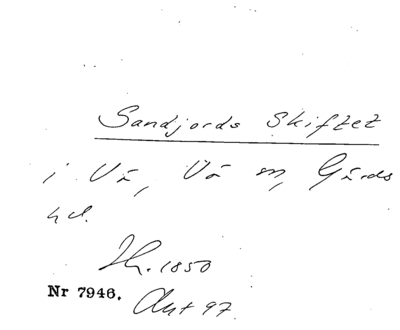 Sandjords Skiftet
i Vå, Vå sn, Gärds
hd.
Th. 1850
Nr 7946. Akt 97